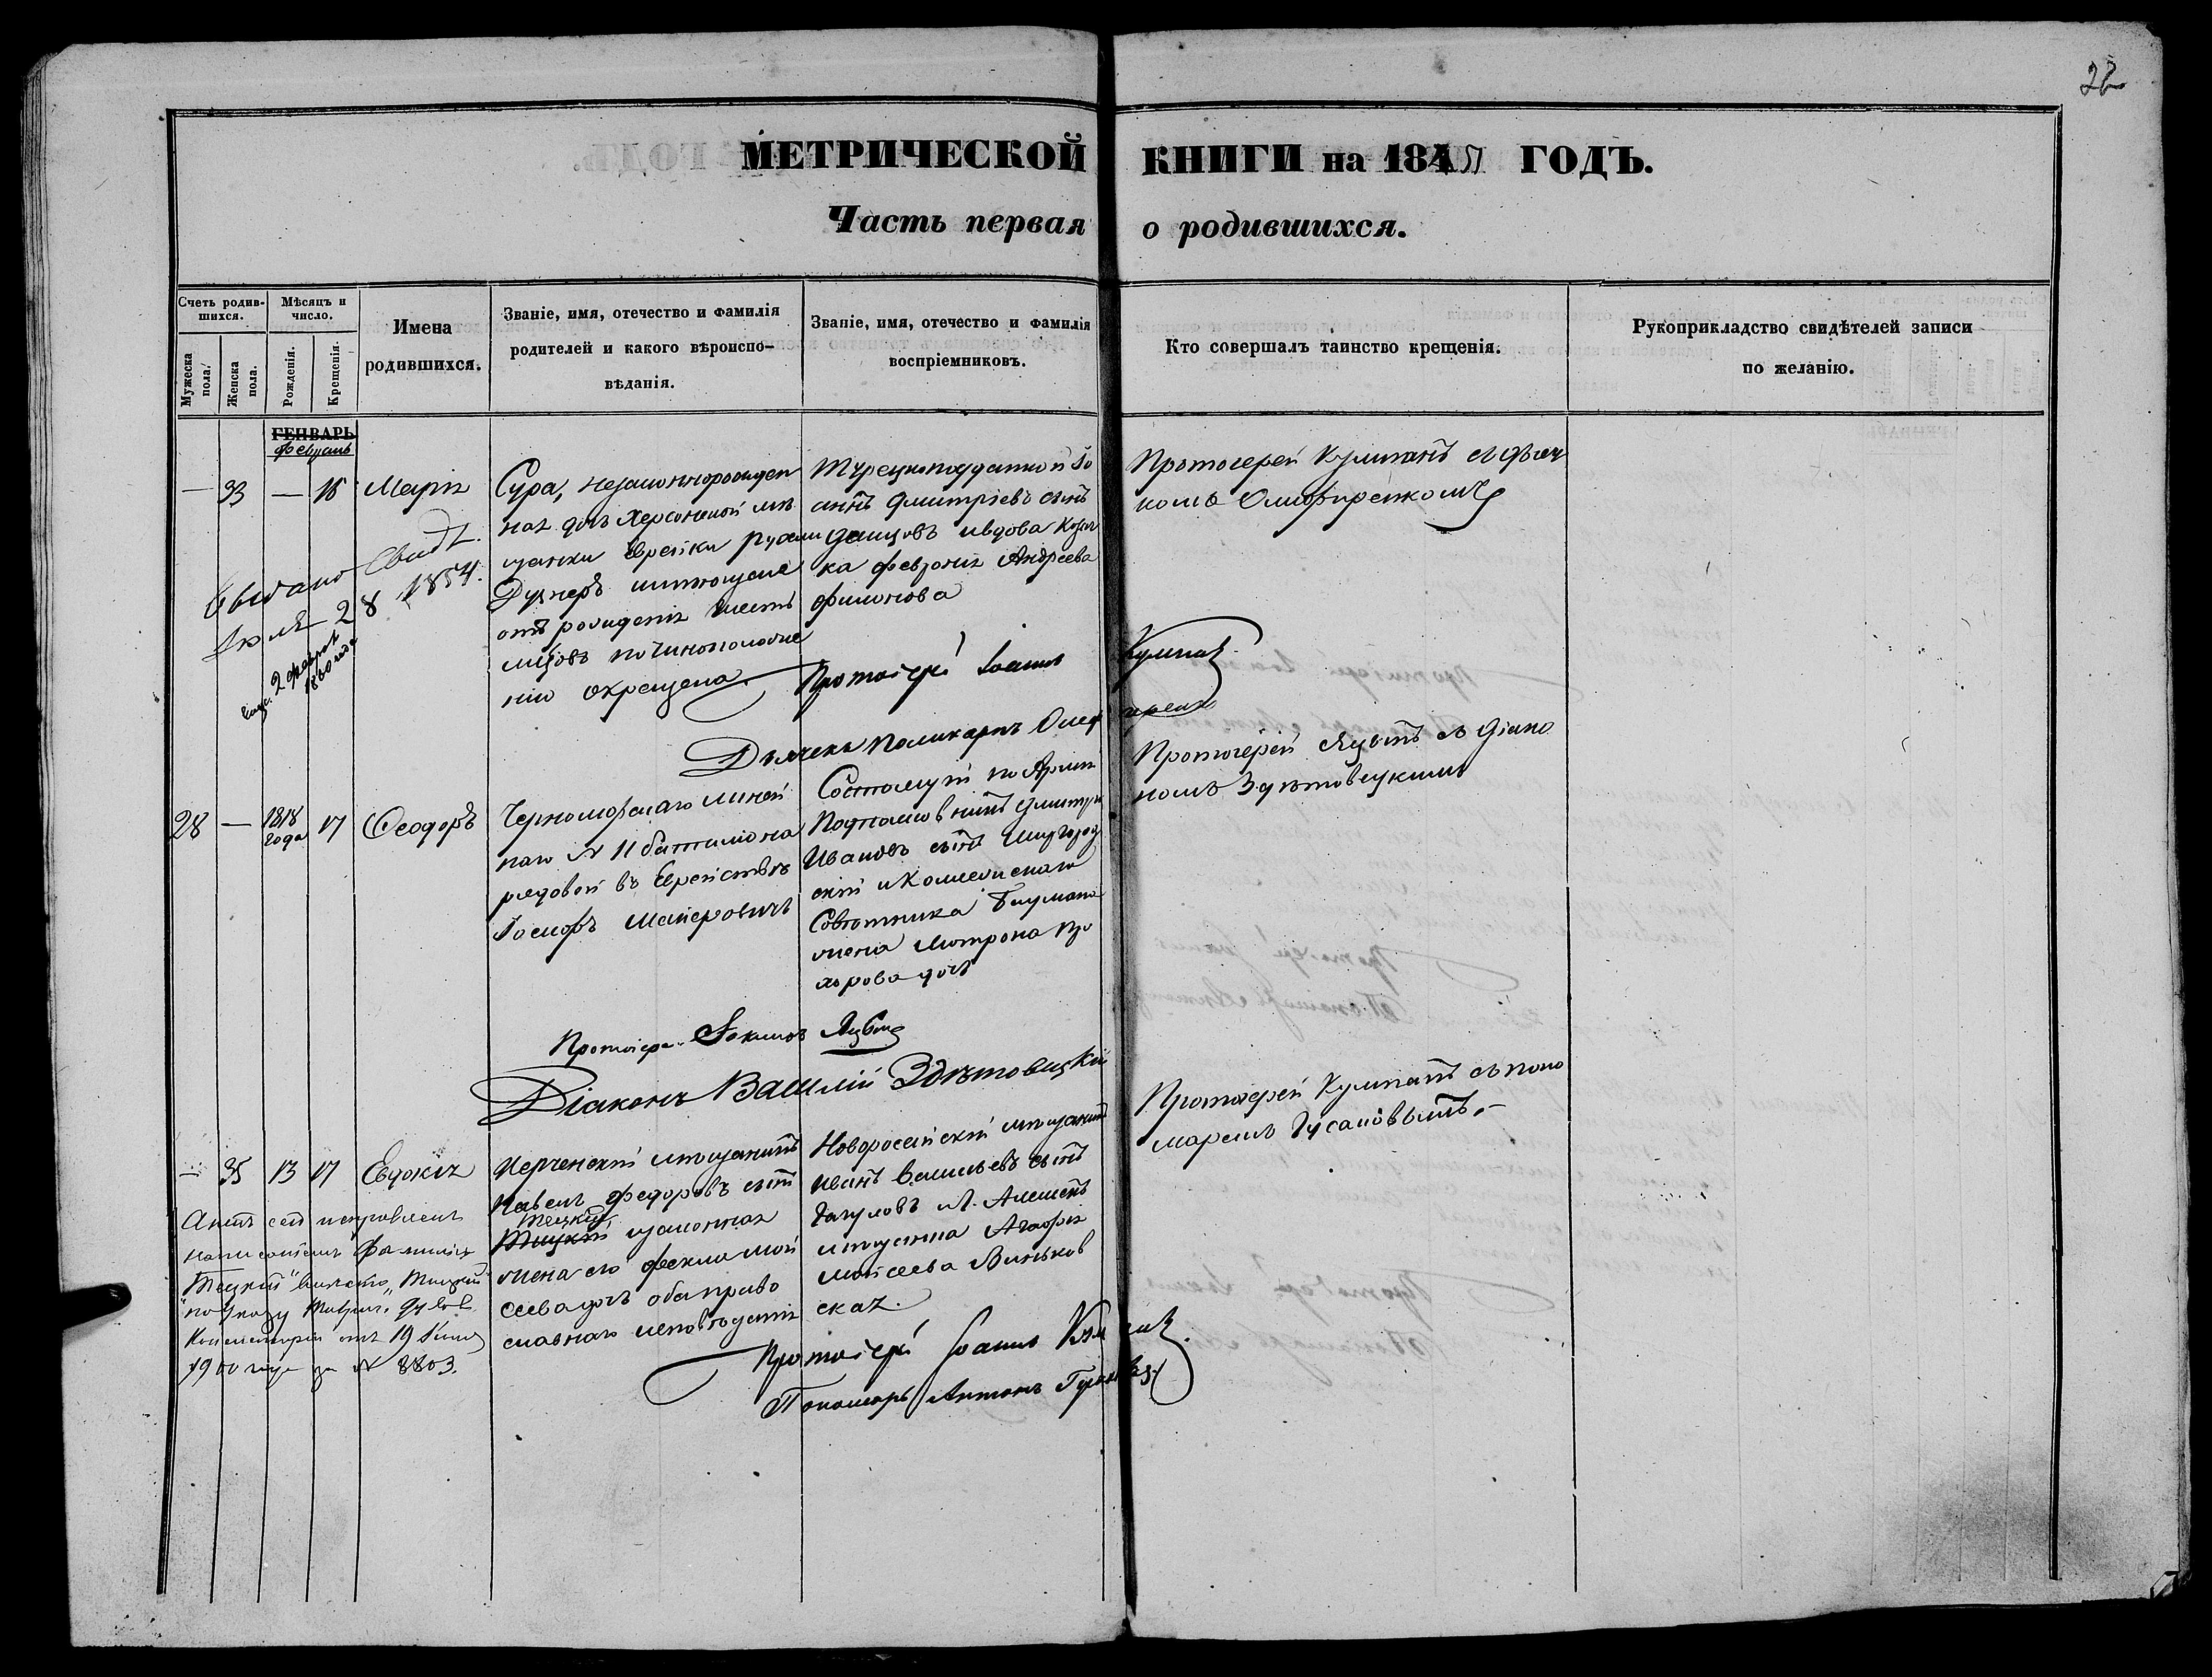 28
МЕТРИЧЕСКОЙ КНИГИ на 184 ГОДЪ.
Часть первая о родившихся.
Счетъ родив-
шихся.
Мужеска
пола.
Женска
пола.
Мѣсяцъ и
число.
Рожденія.
Крещенія.
Имена
родившихся.
Званіе, имя, отечество и фамилія
родителей и какого вѣроиспо-
вѣданія.
Званіе, имя, отечество и фамилія
воспріемниковъ.
Кто совершалъ таинство крещенія.
Рукоприкладство свидѣтелей записи
по желанію.
ГЕНВАРЬ
февраль
— 33 — 15 Марія
Сура, незаконнорожден
ная дочь Херсонской мѣ
щанки Еврейки
имѣющая
отъ рожденія шесть
по чиноположе
нію окрещена
Турецкоподданной Іо
аннъ Дмитріевъ сынъ
ивдова Козач
ка Февронія Андреева
Филонова
Протоіерей Кумпанъ съ дьяч
комъ
Выдано Свид.
28 1854.
2 февраля
1860 года
Протоіерей Іоаннъ Кумпан
Дьячекъ Поликарпъ
28 — 1818 года 17 Ѳеодоръ
Черноморскаго линей
наго № 11 баталіона
рядовой въ Еврействѣ
Іосифъ Мейеровичъ
Состоящій по Арміи
Подполковникъ Дмитрій
Ивановъ сынъ Миргород
скій и Коллежскаго
Совѣтника
жена Матрона
дочь
Протоіерей съ Діако
номъ Здѣтовецкимъ
Протоіерей
Діаконъ Василій Здѣтовецкій
— 35 13 17 Евдокія
Керченскій мѣщанинъ
Павелъ Федоровъ сынъ
Тецкій
законная
жена его Фекла Мои
сеева дочь оба право
славнаго исповѣданія
Новоросійскій мѣщанинъ
Иванъ Васильевъ сынъ
мѣщанка Агафія
Моисеева Виньков
ская.
Протоіерей Кумпанъ съ поно
маремъ Гусаковымъ.
Актъ сей исправленъ
написаніемъ фамиліи
"Тецкій" вмѣсто "Тицкій"
по указу Таврич. Духов.
Консисторіи отъ 19 Іюня
1900 года за № 8803.
Протоіерей Іоаннъ Кумпан
Пономарь Антонъ Гусаковъ